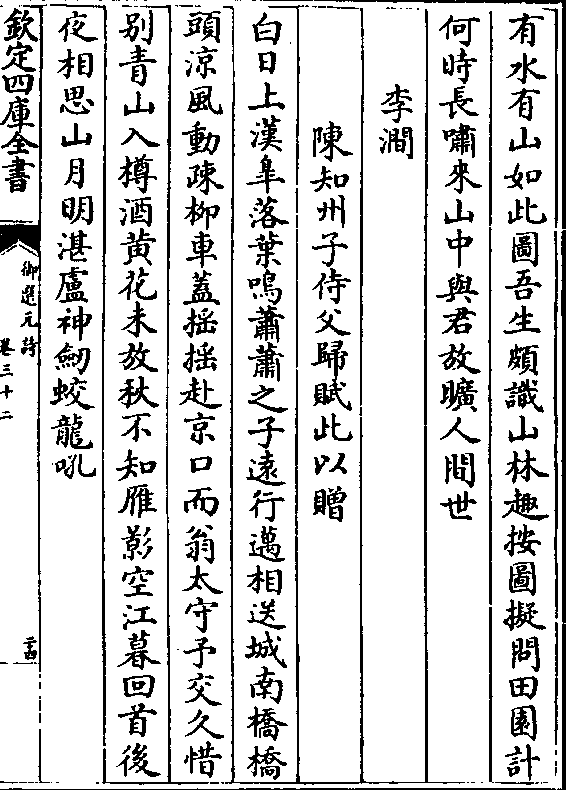 有水有山如此圖吾生頗識山林趣按圖擬問田園計
何時長嘯來山中與君放曠人間世
李澗
陳知州子侍父歸賦此以贈
白日上漢臯落葉鳴蕭蕭之子遠行邁相送城南橋橋
頭涼風動疎柳車蓋揺揺赴京口而翁太守予交久惜
别青山入樽酒黄花未放秋不知雁影空江暮回首後
夜相思山月明湛盧神劒蛟龍吼
欽定四庫全書
御選元詩
卷三十二
二四